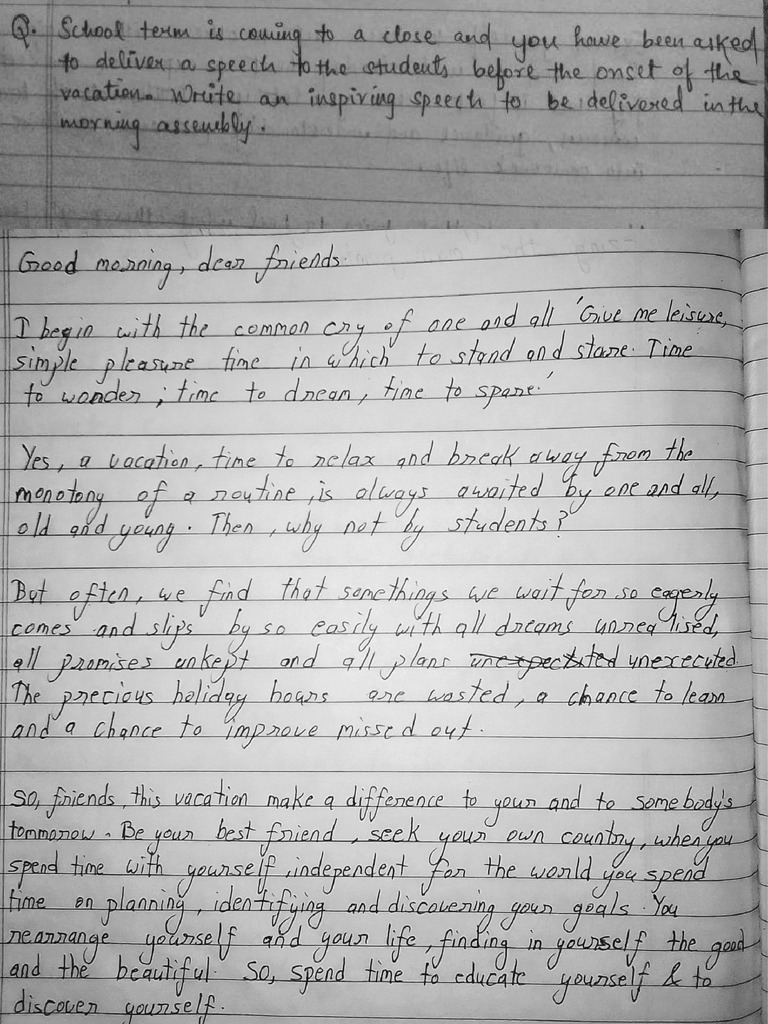 Q. School term is coming to a close and you have been asked
to deliver a speech to the students before the onset of the
vacation. Write an inspiring speech to be delivered in the
morning assembly.
Good morning, dear friends.
I begin with the common cry of one and all 'Give me leisure,
simple pleasure time in which to stand and stare. Time
to wonder; time to dream, time to spare.'
Yes, a vacation, time to relax and break away from the
monotony of a routine, is always awaited by one and all,
old and young. Then, why not by students?
But often, we find that somethings we wait for so eagerly
comes and slips by so easily with all dreams unrealised,
all promises unkept and all plans unexecuted.
The precious holiday hours are wasted, a chance to learn
and a chance to improve missed out.
So, friends, this vacation make a difference to your and to somebody's
tommorow. Be your best friend, seek your own country, when you
spend time with yourself, independent for the world you spend
time on planning, identifying and discovering your goals. You
rearrange yourself and your life, finding in yourself the good
and the beautiful. So, spend time to educate yourself & to
discover yourself.